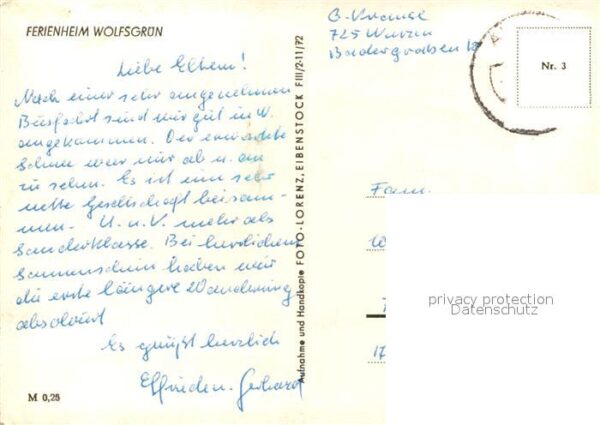 FERIENHEIM WOLFSGRÜN
Liebe Eltern!
Nach einer sehr angenehmen
Busfahrt sind wir gut in W.
angekommen. Der erwartete
Schnee war nur ab u. an
zu sehen. Es ist eine sehr
nette Gesellschaft beisam-
men. U. u. V. mehr als
Sonderklasse. Bei herrlichem
Sonnenschein haben wir
die erste längere Wanderung
absolviert
Es grüßt herzlich
Elfrieden. Gerhard
M 0,25
Aufnahme und Handkopie FOTO-LORENZ, EIBENSTOCK F III/2-11/72
G. Krause
725 Wurzen
Badergraben 18
Nr. 3
Fam.
17
privacy protection
Datenschutz